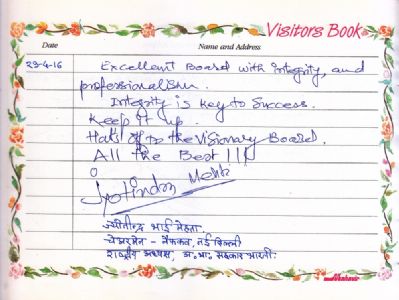 Visitors Book
Date Name and Address
23-4-16 Excellent Board with integrity, and
professionalism.
Integrity is key to success.
Keep it up.
Hats off to the Visionary Board.
All the Best !!!
Jyotindra Mehta
ज्योतीन्द्र भाई मेहता.
चेअरमेन - नैफकब, नई दिल्ली
राष्ट्रीय अध्यक्ष, अ.भा. सहकार भारती.